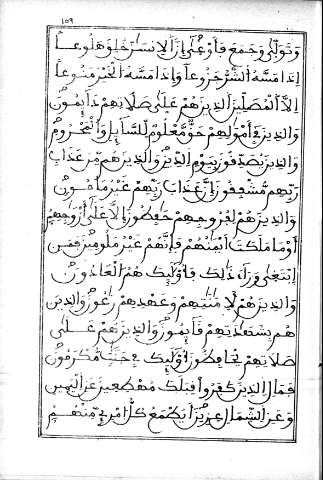 ١٥٩
وَتَوَلَّىٰ وَجَمَعَ فَأَوْعَىٰ إِنَّ الْإِنسَانَ خُلِقَ هَلُوعاً
إِذَا مَسَّهُ الشَّرُّ جَزُوعاً وَإِذَا مَسَّهُ الْخَيْرُ مَنُوعاً
إِلَّا الْمُصَلِّينَ الَّذِينَ هُمْ عَلَىٰ صَلَاتِهِمْ دَايِمُونَ
وَالَّذِينَ فِي أَمْوَٰلِهِمْ حَقٌّ مَّعْلُومٌ لِّلسَّايِلِ وَالْمَحْرُومِ
وَالَّذِينَ يُصَدِّقُونَ بِيَوْمِ الدِّينِ وَالَّذِينَ هُم مِّنْ عَذَابِ
رَبِّهِم مُّشْفِقُونَ إِنَّ عَذَابَ رَبِّهِمْ غَيْرُ مَامُونٍ
وَالَّذِينَ هُمْ لِفُرُوجِهِمْ حَافِظُونَ إِلَّا عَلَىٰ أَزْوَاجِهِمْ
أَوْ مَا مَلَكَتْ أَيْمَٰنُهُمْ فَإِنَّهُمْ غَيْرُ مَلُومِينَ فَمَنِ
ابْتَغَىٰ وَرَاءَ ذَالِكَ فَأُوْلَٰيِكَ هُمُ الْعَادُونَ
وَالَّذِينَ هُمْ لِأَمَٰنَٰتِهِمْ وَعَهْدِهِمْ رَٰعُونَ وَالَّذِينَ
هُم بِشَهَٰدَتِهِمْ قَايِمُونَ وَالَّذِينَ هُمْ عَلَىٰ
صَلَاتِهِمْ يُحَافِظُونَ أُوْلَٰيِكَ فِي جَنَّٰتٍ مُّكْرَمُونَ
فَمَالِ الَّذِينَ كَفَرُوا قِبَلَكَ مُهْطِعِينَ عَنِ الْيَمِينِ
وَعَنِ الشِّمَالِ عِزِينَ أَيَطْمَعُ كُلُّ امْرِئٍ مِّنْهُمْ